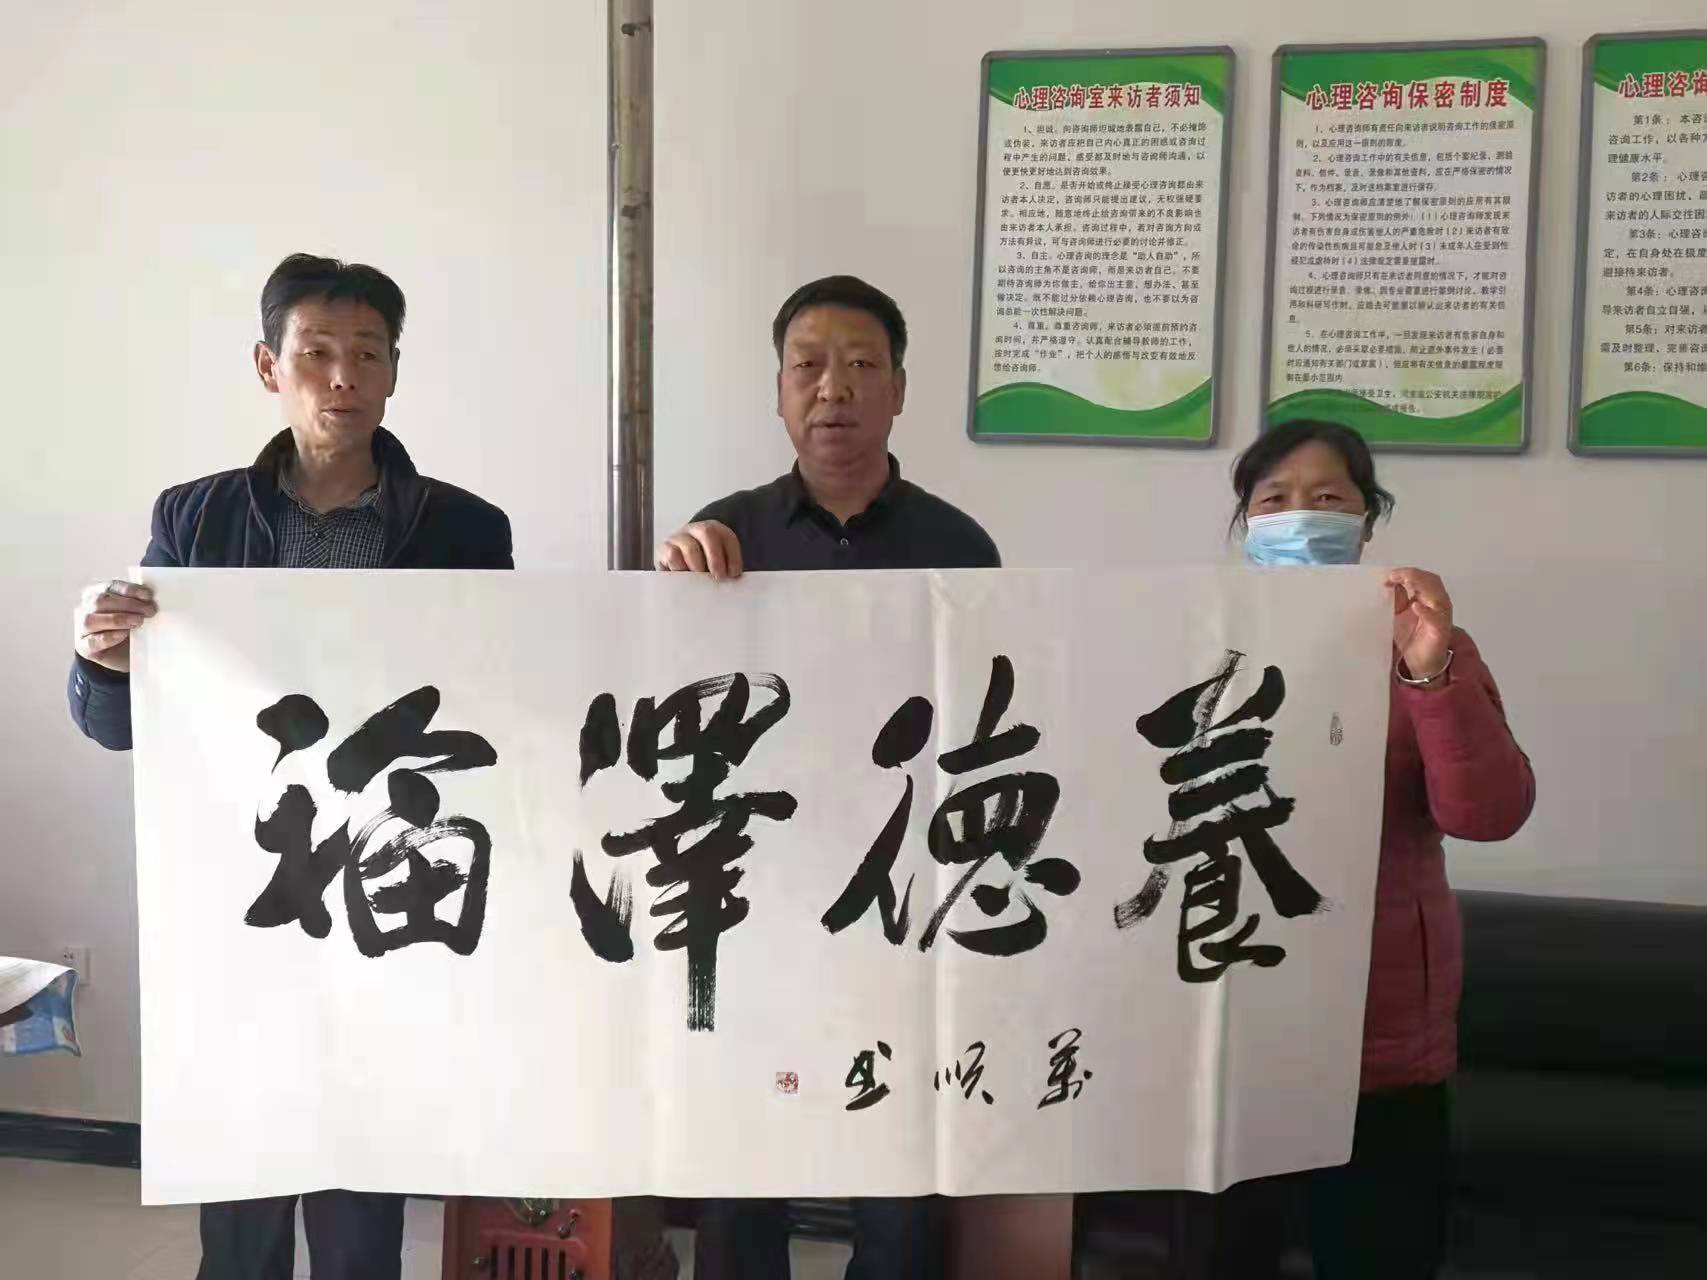 心理咨询室来访者须知
1、坦诚。向咨询师坦城地表露自己，不必掩饰
或伪装，来访者应把自己内心真正的困惑或咨询过
程中产生的问题、感受都及时地与咨询师沟通，以
便更快更好地达到咨询效果。
2、自愿。是否开始或终止接受心理咨询都由来
访者本人决定，咨询师只能提出建议，无权强硬要
求。相应地，随意地终止给咨询带来的不良影响也
由来访者本人承担。咨询过程中，若对咨询方向或
方法有异议，可与咨询师进行必要的讨论并修正。
3、自主。心理咨询的理念是“助人自助”，所
以咨询的主角不是咨询师，而是来访者自己。不要
期待咨询师为你做主，给你出主意、想办法、甚至
做决定。既不能过分依赖心理咨询，也不要以为咨
询总能一次性解决问题。
4、尊重。尊重咨询师，来访者必须提前预约咨
询时间，并严格遵守。认真配合辅导教师的工作，
按时完成“作业”，把个人的感悟与改变有效地反
馈给咨询师。
心理咨询保密制度
1、心理咨询师有责任向来访者说明咨询工作的保密原
则，以及应用这一原则的限度。
2、心理咨询工作中的有关信息，包括个案纪录、测验
资料、信件、录音、录像和其他资料，应在严格保密的情况
下，作为档案，及时送档案室进行保存。
3、心理咨询师应清楚地了解保密原则的应用有其限
制，下列情况为保密原则的例外：(1)心理咨询师发现来
访者有伤害自身或伤害他人的严重危险时(2)来访者有致
命的传染性疾病且可能危及他人时(3)未成年人在受到性
侵犯或虐待时(4)法律规定需要披露时。
4、心理咨询师只有在来访者同意的情况下，才能对咨
询过程进行录音、录像。因专业需要进行案例讨论、教学引
用和科研写作时，应隐去可能据以辨认出来访者的有关信
息。
5、在心理咨询工作中，一旦发现来访者有危害自身和
他人的情况，必须采取必要措施，防止意外事件发生(必要
时应通知有关部门或家属)，但应将有关信息的暴露程度限
制在最小范围内
心理咨
第1条：本咨
咨询工作，以各种方
理健康水平。
第2条：心理咨
访者的心理困扰，
来访者的人际交往困
第3条：心理咨
定，在自身处在极度
避接待来访者。
第4条：心理咨
导来访者自立自强，
第5条：对来访者
需及时整理，完善咨
第6条：保持和维
養德澤福
萬順书